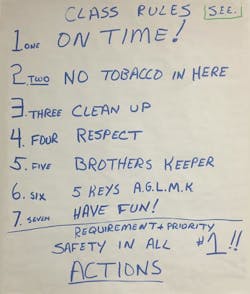 CLASS RULES SEE.
1. ONE ON TIME!
2. TWO NO TOBACCO IN HERE
3. THREE CLEAN UP
4. FOUR RESPECT
5. FIVE BROTHERS KEEPER
6. SIX 5 KEYS A.G.L.M.K
7. SEVEN HAVE FUN!
REQUIREMENT + PRIORITY
SAFETY IN ALL #1!!
ACTIONS